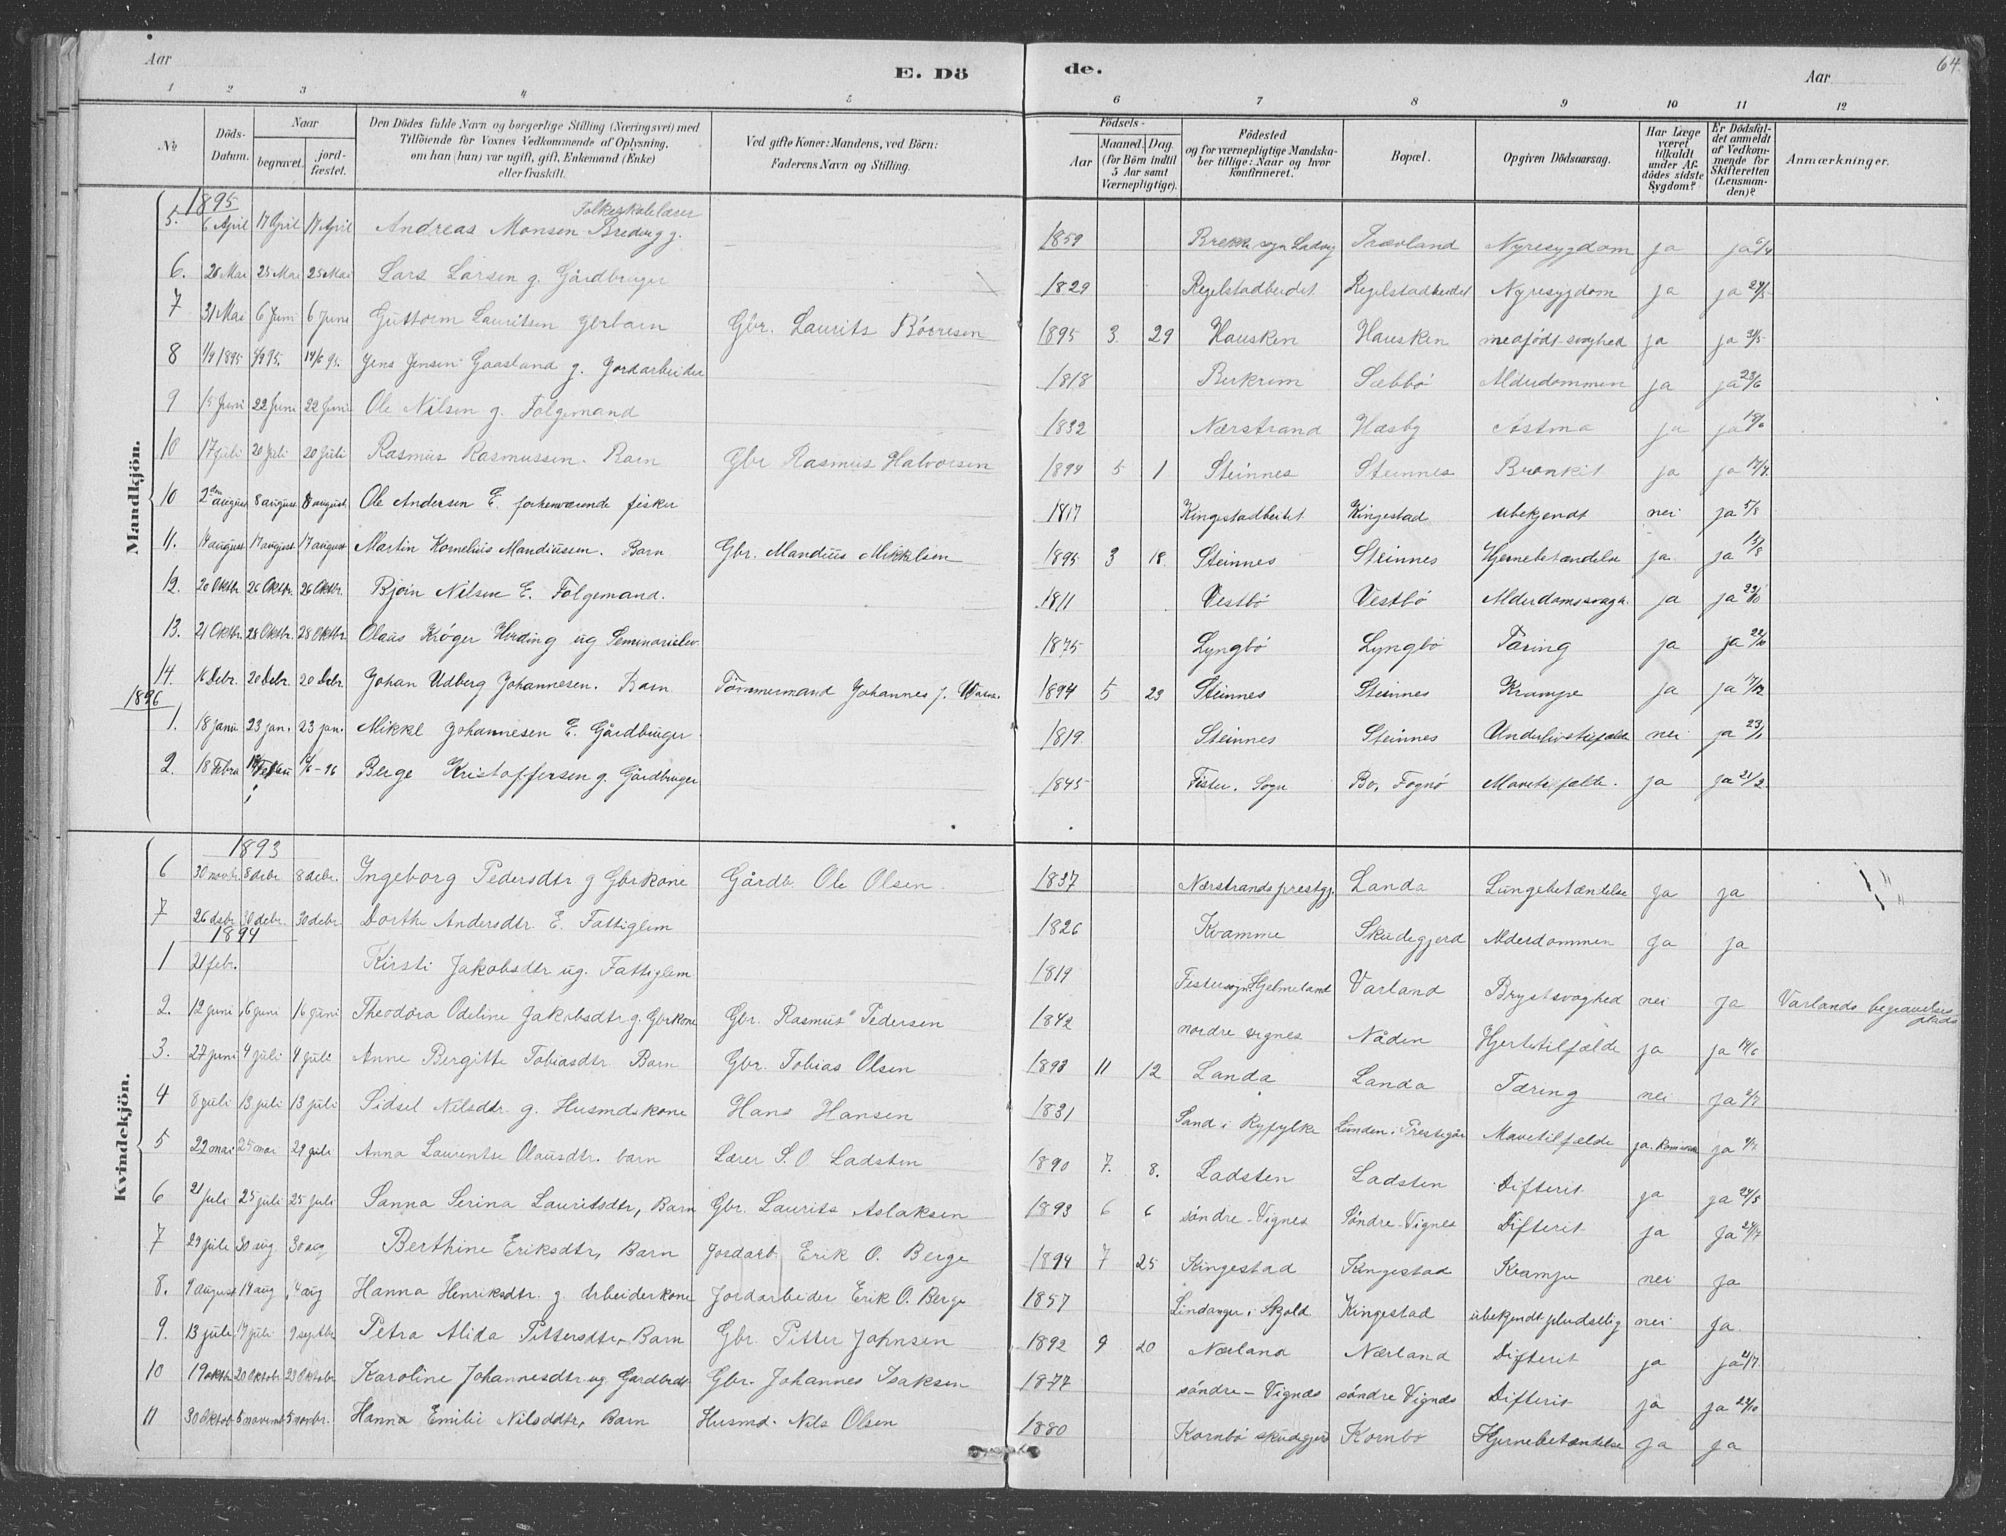 Aar
E. Dö
de.
Aar
64
1 2 3 4 5 6 7 8 9 10 11 12
No
Döds-Datum.
Naar
begravet.
jord-fæstet.
Den Dödes fulde Navn og borgerlige Stilling (Næringsvei) med
Tilföiende for Voxnes Vedkommende af Oplysning,
om han (hun) var ugift, gift, Enkemand (Enke)
eller fraskilt.
Ved gifte Koner: Mandens, ved Börn:
Faderens Navn og Stilling.
Födsels-
Aar
Maaned. Dag.
(for Börn indtil
5 Aar samt
Værnepligtige).
Födested
og for værnepligtige Mandska-
ber tillige: Naar og hvor
konfirmeret.
Bopæl.
Opgiven Dödsaarsag.
Har Læge
været
tilkaldt
under Af-
dödes sidste
Sygdom?
Er Dödsfal-
det anmeldt
af Vedkom-
mende for
Skifteretten
(Lensman-
den)?
Anmærkninger.
Mandkjön.
1895
5. 6 April 17 April 17 April Andreas Monsen Bredvig g. Folkeskolelærer 1859 Brekke sogn Ladvig Trævland Nyresygdom ja ja 6/4
6. 20 Mai 25 Mai 25 Mai Lars Larsen g. Gårdbruger 1829 Regelstadbeidet Regelstadbeidet Nyresygdom ja ja
7 31 Mai 6 Juni 6 Juni Guttorm Lauritsen Gbrbarn Gbr. Laurits Börresen 1895 3 29 Hausken Hausken medfödt svaghed ja ja 31/5
8 14/6 95. Jens Jensen Gaasland g. Jordarbeider 1818 Birkrem Sæbbö Alderdommen ja ja 23/6
9 15 Juni 22 Juni 22 Juni Ole Nilsen g. Folgemand 1832 Nærstrand Hæsby Astma ja ja 18/6
10 17 Juli 20 Juli 20 Juli Rasmus Rasmussen. Barn Gbr Rasmus Halvorsen 1894 5 1 Steinnes Steinnes Bronkit ja ja
10 2den august 8 august 8 august Ole Andersen E. forhenværende fisker 1817 Kingestadbeitet Kingestad ubekjendt nei ja 5/8
11. 14 august 17 august 17 august Martin Kornelius Mandiussen. Barn Gbr. Mandius Mikkelsen 1895 3 18. Steinnes Steinnes Hjernebetændelse ja. ja 15/8
12. 20 Oktbr. 26 Oktbr. 26 Oktbr. Bjørn Nilsen E. Folgemand. 1811 Vestbö Vestbö Alderdomssvagh. ja ja 23/10
13. 21 Oktbr. 28 Oktbr. 28 Oktbr. Olaus Kröger Hirding ug Seminarielev. 1875 Lyngbö Lyngbö Tæring ja ja 22/10
14. 16 Debr. 20 Debr. 20 Debr. Johan Udberg Johannesen. Barn Tömmermand Johannes J. 1894 5 23 Steinnes Steinnes Krampe ja ja 17/12
1896
1. 18 janu 23 jan. 23 jan. Mikkl Johannesen E. Gårdbruger 1819. Steinnes Steinnes Underlivstilfælde nei ja 23/1
2. 18 Febra Berge Kristoffersen g. Gårdbruger 1845 Fister. Sogn Bo, Fognö Mavetilfælde. ja ja 21/2.
Kvindekjön.
1893
6 30 novbr. 8 debr 8 debr. Ingeborg Pedersdtr g Gbrkone Gårdb. Ole Olsen. 1837 Nærstrands prestgj. Landa Lungebetændelse ja ja
7 26 debr. 30 debr. 30 debr Dorthe Andersdtr. E. Fattiglem 1826 Kvamme Skudegjerd Alderdommen ja ja
1894
1 21 feb. Kirsti Jakobsdtr ug. Fattiglem 1819 Fister sogn Hjelmeland Varland Brystsvaghed nei ja Varlands begravelses plads
2. 12 juni 16 juni 16 juni Theodora Odeline Jakobsdtr g. Gbrkone Gbr. Rasmus Pedersen 1842 nordre vignes Nåden Hjertetilfælde ja ja 14/6
3. 27 juni 4 juli 4 juli Anne Bergitte Tobiasdtr. Barn Gbr. Tobias Olsen 1893 11 12 Landa Landa Tæring nei ja 2/7
4 8 juli 13 juli 13 juli Sidsel Nilsdtr. g. Husmdskone Hans Hansen 1831 Sand i Ryfylke Lunden i Prestegår Mavetilfælde ja. ja 9/7
5 22 mai 25 mai 29 juli Anna Laurentse Olausdtr. barn Lærer S. O Ladsten 1890 7. 8. Ladsten Ladsten Difterit ja ja 24/5
6 21 juli 25 juli 25 juli Sanna Serina Lauritsdtr, Barn Gbr. Laurits Aslaksen 1893 6 6 söndre-Vignes Söndre-Vignes Difterit ja ja 24/7
7 29 juli 30 aug 30 aug Berthine Eriksdtr, Barn Jordarb Erik O. Berge 1894 7 25 Kingestad Kingestad Krampe nei ja
8. 9 august 14 aug 14 aug Hanna Henriksdtr. g. Arbeiderkone Jordarbeider Erik O. Berge 1857 Lindanger i Skjold Kingestad ubekjendt pludselig nei ja.
9. 13 juli 17 juli 9 septbr Petra Alida Pittersdtr, Barn Gbr. Pitter Johnsen 1892 9 20 Nærland Nærland Difterit ja ja 21/7.
10 19 oktbr 20 Oktobr 20 Oktobr Karoline Johannesdtr ug Gardbrdt. Gbr. Johannes Isaksen 1877 söndre-Vignes söndre Vignes Difterit ja ja 22/10
11 30 Oktob 5 novemb 5 novbr. Hanna Emilie Nilsddtr, Barn Husmd. Nils Olsen 1880 Kornbö skudegjerd Kornbo Hjernebetændelse ja ja